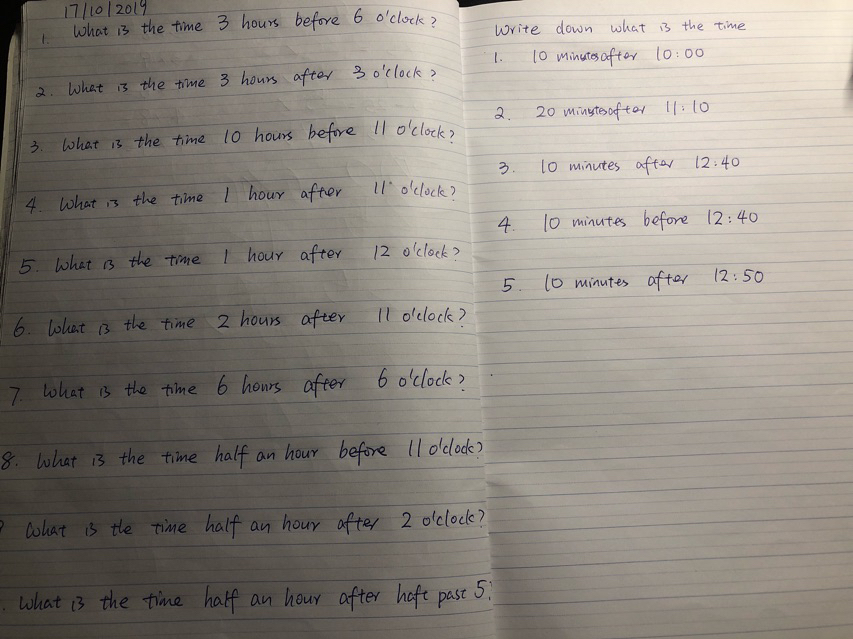 17/10/2019
1. What is the time 3 hours before 6 o'clock?
2. What is the time 3 hours after 3 o'clock?
3. What is the time 10 hours before 11 o'clock?
4. What is the time 1 hour after 11 o'clock?
5. What is the time 1 hour after 12 o'clock?
6. What is the time 2 hours after 11 o'clock?
7. What is the time 6 hours after 6 o'clock?
8. What is the time half an hour before 11 o'clock?
What is the time half an hour after 2 o'clock?
. What is the time half an hour after haft past 5?
Write down what is the time
1. 10 minutes after 10:00
2. 20 minutes after 11:10
3. 10 minutes after 12:40
4. 10 minutes before 12:40
5. 10 minutes after 12:50